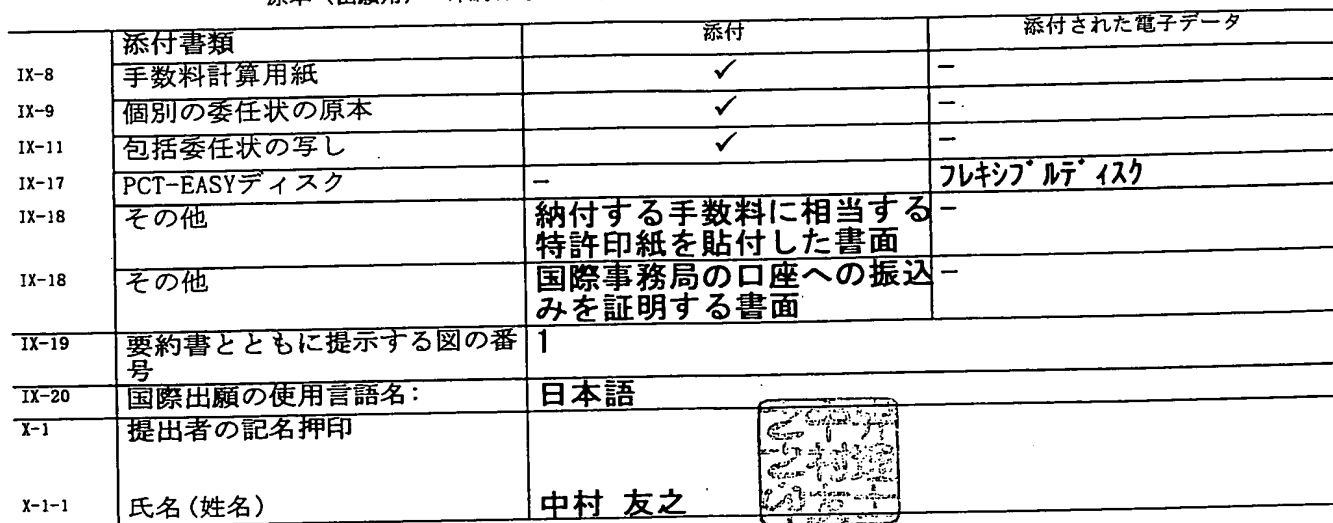 添付書類 添付 添付された電子データ
IX-8 手数料計算用紙 ✓ -
IX-9 個別の委任状の原本 ✓ -
IX-11 包括委任状の写し ✓ -
IX-17 PCT-EASYディスク - フレキシブルディスク
IX-18 その他 納付する手数料に相当する -
特許印紙を貼付した書面
IX-18 その他 国際事務局の口座への振込 -
みを証明する書面
IX-19 要約書とともに提示する図の番 1
号
IX-20 国際出願の使用言語名: 日本語
X-1 提出者の記名押印
X-1-1 氏名(姓名) 中村 友之